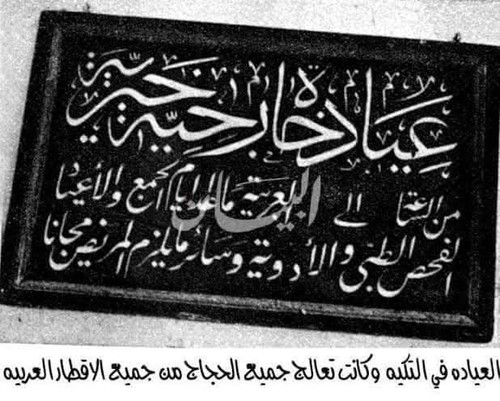 عيادة خارجية خيرية
من الساعة الى العربية ما عدا ايام الجمع والأعياد
الفحص الطبي والأدوية وسائر ما يلزم المريض مجانا
العياده في التكيه وكانت تعالج جميع الحجاج من جميع الاقطار العربيه